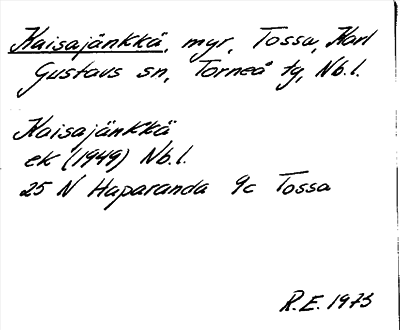 Kaisajänkkä, myr, Tossa, Karl
Gustavs sn, Torneå tg, Nb.l.
Kaisajänkkä
ek (1949) Nb.l.
25 N Haparanda 9c Tossa
R.E. 1973